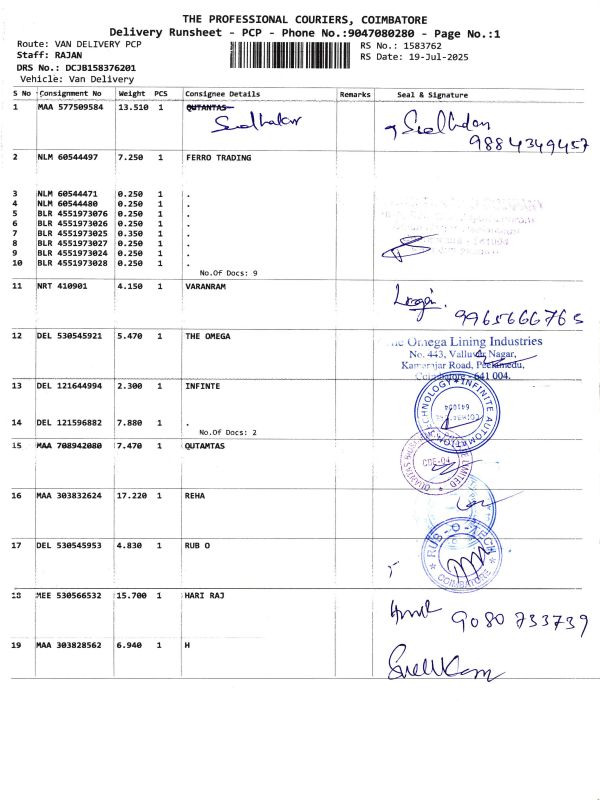 THE PROFESSIONAL COURIERS, COIMBATORE
Delivery Runsheet - PCP - Phone No.:9047080280 - Page No.:1
Route: VAN DELIVERY PCP RS No.: 1583762
Staff: RAJAN RS Date: 19-Jul-2025
DRS No.: DCJB158376201
Vehicle: Van Delivery
S No Consignment No Weight PCS Consignee Details Remarks Seal & Signature
1 MAA 577509584 13.510 1 QUTANTAS
9884349457
2 NLM 60544497 7.250 1 FERRO TRADING
3 NLM 60544471 0.250 1 .
4 NLM 60544480 0.250 1 .
5 BLR 4551973076 0.250 1 .
6 BLR 4551973026 0.250 1 .
7 BLR 4551973025 0.350 1 .
8 BLR 4551973027 0.250 1 .
9 BLR 4551973024 0.250 1 .
10 BLR 4551973028 0.250 1 .
No.Of Docs: 9
11 NRT 410901 4.150 1 VARANRAM
9965666765
12 DEL 530545921 5.470 1 THE OMEGA
The Omega Lining Industries
No. 443, Valluvar Nagar,
Kamarajar Road, Peelamedu,
Coimbatore - 641 004.
13 DEL 121644994 2.300 1 INFINTE
INFINITE AUTOMATION TECHNOLOGY
14 DEL 121596882 7.880 1 .
No.Of Docs: 2
15 MAA 708942080 7.470 1 QUTAMTAS
16 MAA 303832624 17.220 1 REHA
17 DEL 530545953 4.830 1 RUB O
RUB-O-TECH
COIMBATORE
18 MEE 530566532 15.700 1 HARI RAJ
9080 733739
19 MAA 303828562 6.940 1 H